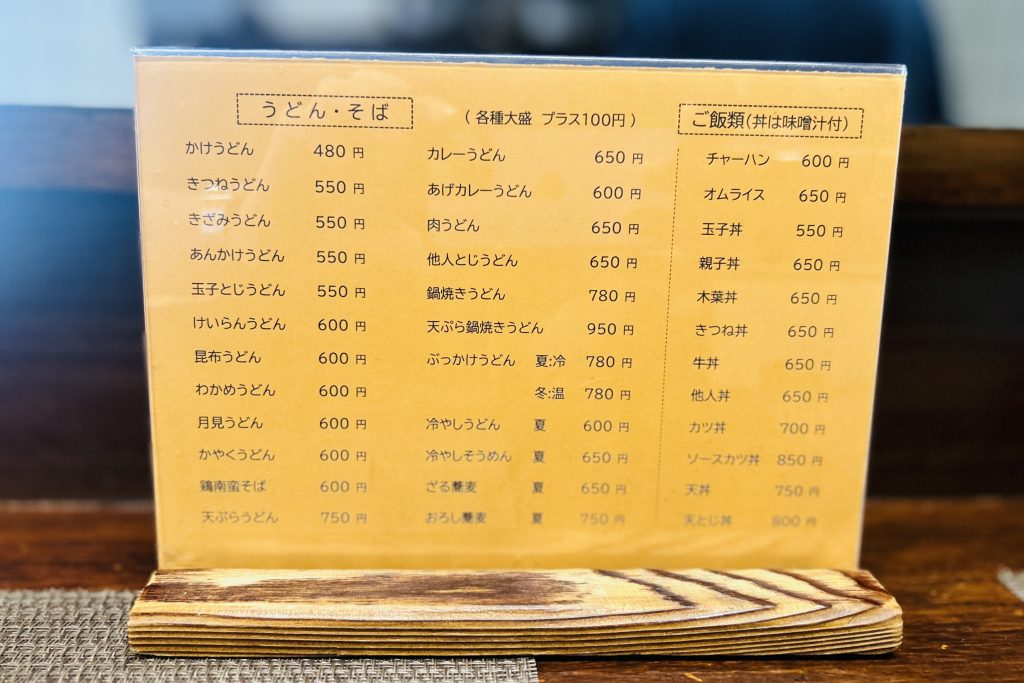 うどん・そば
かけうどん 480 円
きつねうどん 550 円
きざみうどん 550 円
あんかけうどん 550 円
玉子とじうどん 550 円
けいらんうどん 600 円
昆布うどん 600 円
わかめうどん 600 円
月見うどん 600 円
かやくうどん 600 円
鶏南蛮そば 600 円
天ぷらうどん 750 円
（各種大盛 プラス100円）
カレーうどん 650 円
あげカレーうどん 600 円
肉うどん 650 円
他人とじうどん 650 円
鍋焼きうどん 780 円
天ぷら鍋焼きうどん 950 円
ぶっかけうどん 夏:冷 780 円
冬:温 780 円
冷やしうどん 夏 600 円
冷やしそうめん 夏 650 円
ざる蕎麦 夏 650 円
おろし蕎麦 夏 750 円
ご飯類(丼は味噌汁付)
チャーハン 600 円
オムライス 650 円
玉子丼 550 円
親子丼 650 円
木葉丼 650 円
きつね丼 650 円
牛丼 650 円
他人丼 650 円
カツ丼 700 円
ソースカツ丼 850 円
天丼 750 円
天とじ丼 800 円